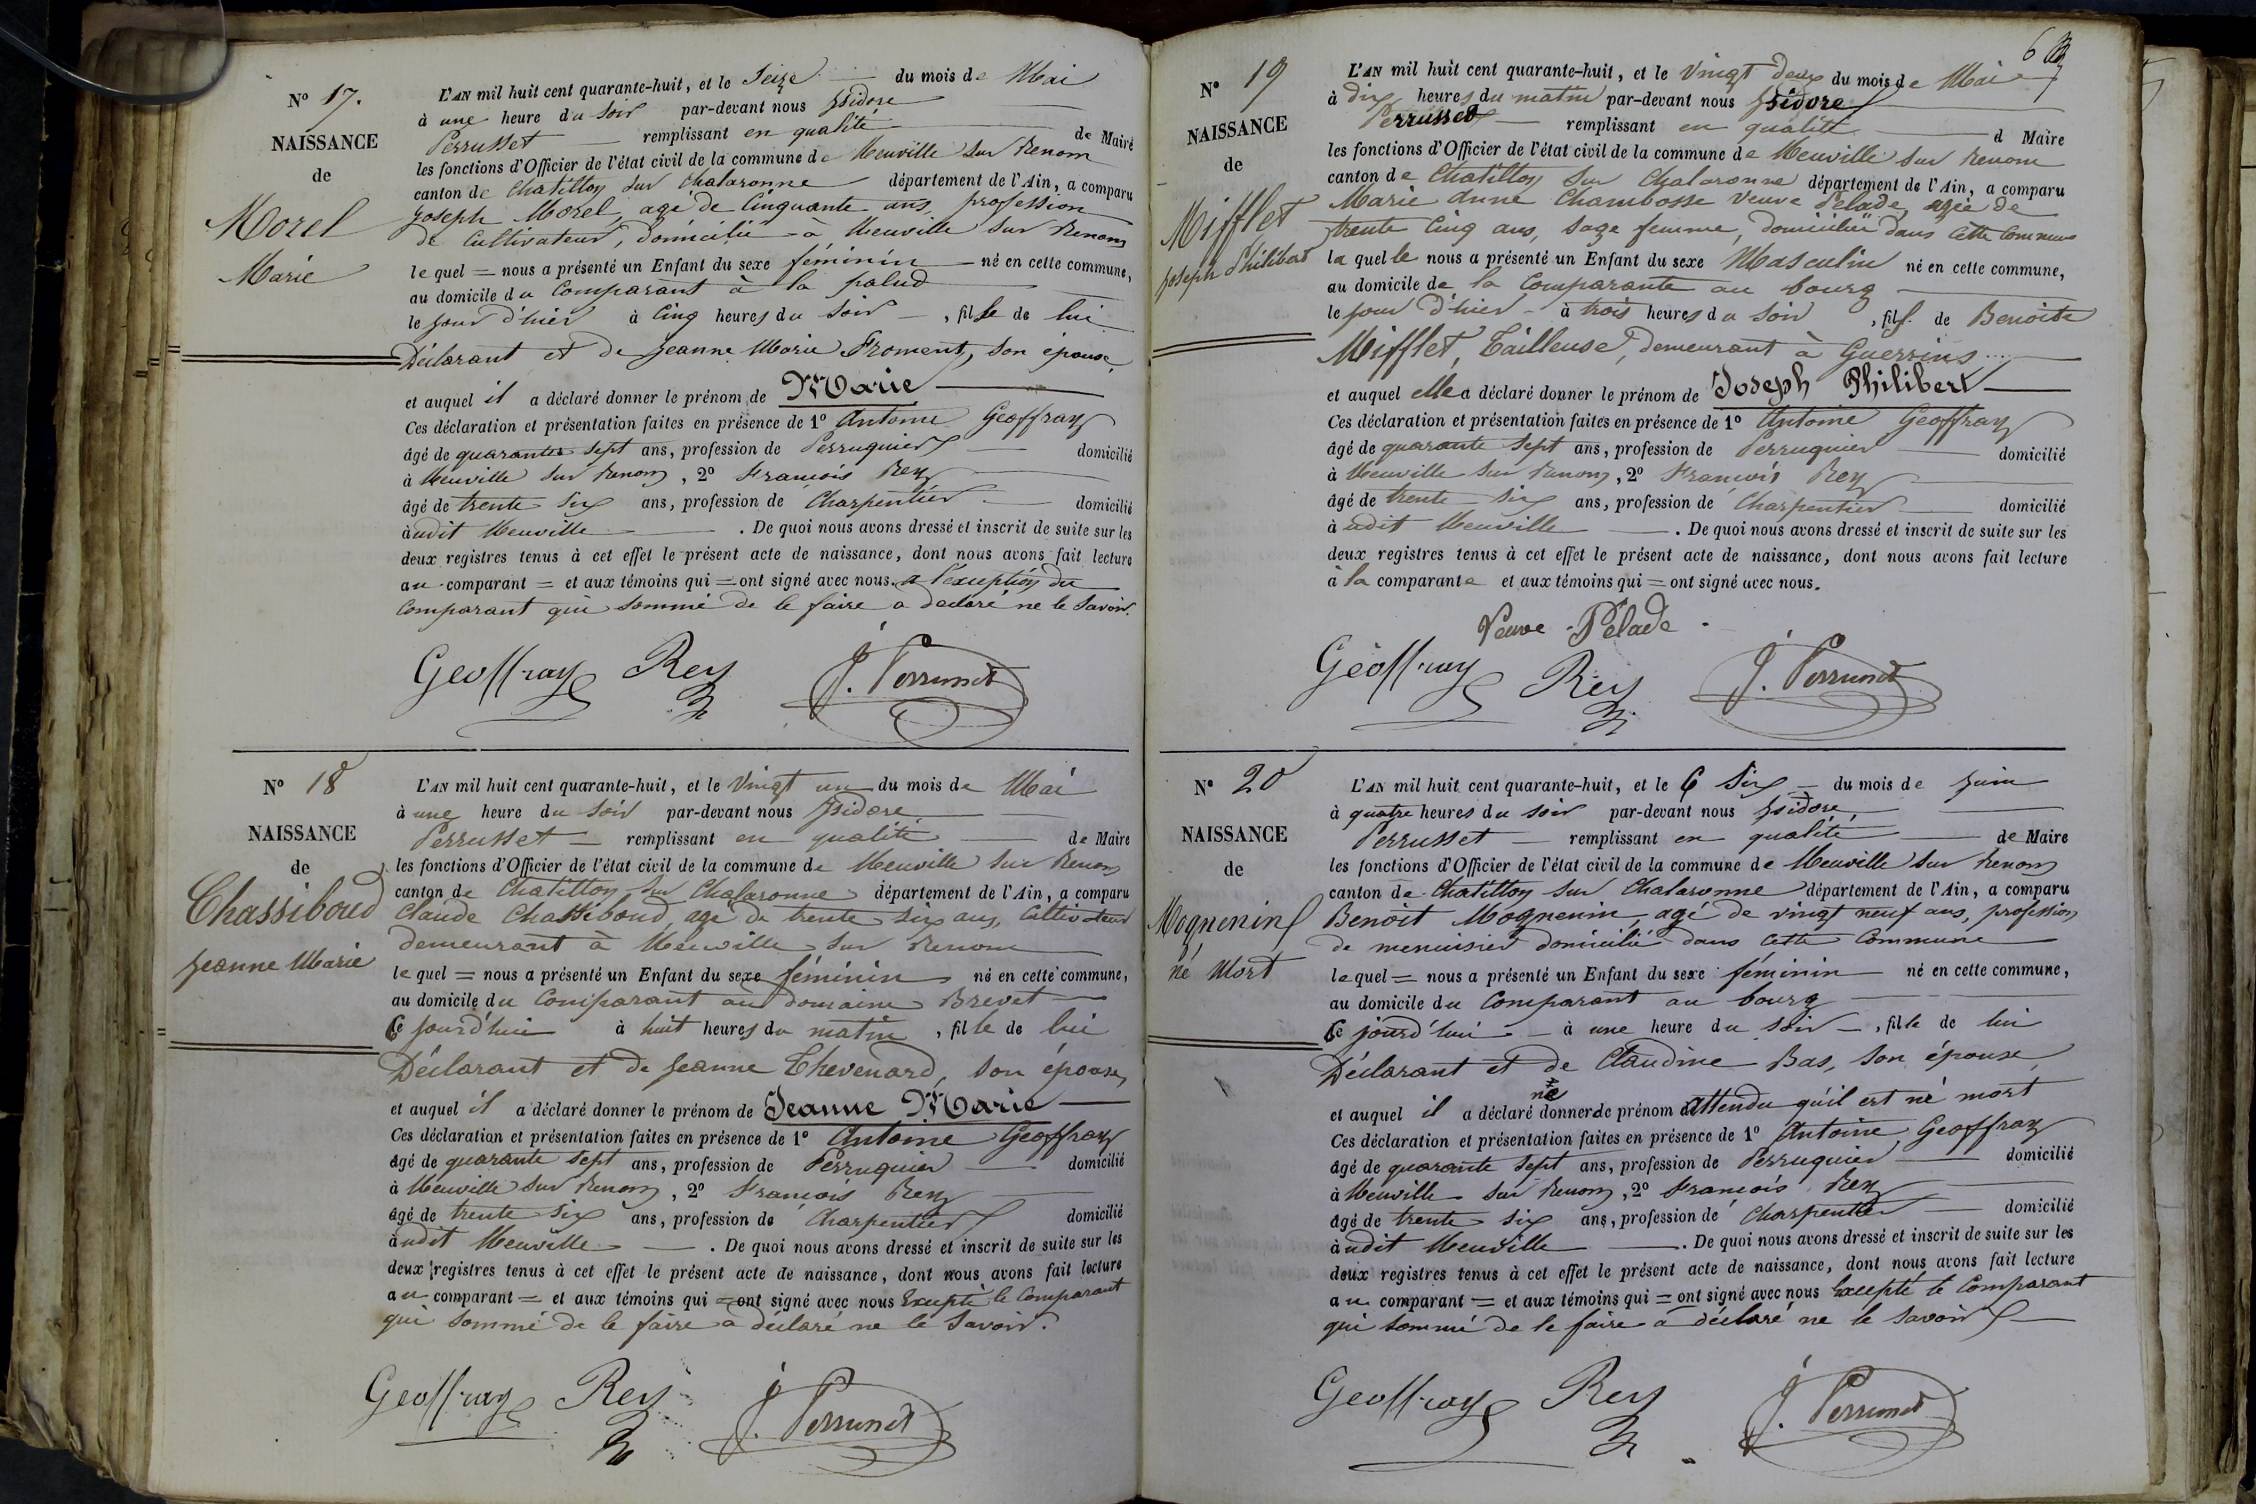 N° 17.
NAISSANCE
de
Morel
Marie
L'AN mil huit cent quarante-huit, et le Seize du mois de Mai
à une heure du soir par-devant nous Isidore
Perrusset remplissant en qualité de Maire
les fonctions d'Officier de l'état civil de la commune de Neuville sur Renom
canton de Chatillon sur Chalaronne département de l'Ain, a comparu
Joseph Morel, agé de Cinquante ans, profession
de Cultivateur, domicilié à Neuville sur Renom
lequel = nous a présenté un Enfant du sexe féminin né en cette commune,
au domicile du Comparant à la palud
le jour d'hier à Cinq heures du Soir, fille de lui
Déclarant et de Jeanne Marie Froment, son épouse,
et auquel il a déclaré donner le prénom de Marie
Ces déclaration et présentation faites en présence de 1° Antoine Geoffray
âgé de quarante sept ans, profession de Perruquier domicilié
à Neuville sur Renom, 2° François Rey
âgé de trente six ans, profession de Charpentier domicilié
audit Neuville. De quoi nous avons dressé et inscrit de suite sur les
deux registres tenus à cet effet le présent acte de naissance, dont nous avons fait lecture
au comparant = et aux témoins qui = ont signé avec nous. a l'exception du
Comparant qui sommé de le faire a declaré ne le Savoir.
Geoffray Rey J. Perrusset
N° 18
NAISSANCE
de
Chassiboud
Jeanne Marie
L'AN mil huit cent quarante-huit, et le Vingt un du mois de Mai
à une heure du soir par-devant nous Isidore
Perrusset remplissant en qualité de Maire
les fonctions d'Officier de l'état civil de la commune de Neuville sur Renom
canton de Chatillon sur Chalaronne département de l'Ain, a comparu
Claude Chassiboud, agé de trente six ans, Cultivateur
demeurant à Neuville sur Renom
lequel = nous a présenté un Enfant du sexe féminin né en cette commune,
au domicile du Comparant au domaine Brevet
Ce jourd'hui à huit heures du matin, fille de lui
Déclarant et de Jeanne Thevenard, son épouse,
et auquel il a déclaré donner le prénom de Jeanne Marie
Ces déclaration et présentation faites en présence de 1° Antoine Geoffray
âgé de quarante sept ans, profession de Perruquier domicilié
à Neuville sur Renom, 2° François Rey
âgé de trente six ans, profession de Charpentier domicilié
audit Neuville. De quoi nous avons dressé et inscrit de suite sur les
deux registres tenus à cet effet le présent acte de naissance, dont nous avons fait lecture
au comparant = et aux témoins qui = ont signé avec nous Excepté le Comparant
qui sommé de le faire a déclaré ne le Savoir.
Geoffray Rey J. Perrusset
6
N° 19
NAISSANCE
de
Mifflet
Joseph Philibert
L'AN mil huit cent quarante-huit, et le Vingt deux du mois de Mai
à dix heures du matin par-devant nous Isidore
Perrusset remplissant en qualité d Maire
les fonctions d'Officier de l'état civil de la commune de Neuville sur Renom
canton de Chatillon sur Chalaronne département de l'Ain, a comparu
Marie Anne Chambosse Veuve Pelade, agée de
trente Cinq ans, sage femme, domiciliée dans cette Commune
laquelle nous a présenté un Enfant du sexe Masculin né en cette commune,
au domicile de la Comparante au bourg
le jour d'hier à trois heures du Soir, fils de Benoite
Mifflet, Tailleuse, demeurant à Guerrins
et auquel elle a déclaré donner le prénom de Joseph Philibert
Ces déclaration et présentation faites en présence de 1° Antoine Geoffray
âgé de quarante sept ans, profession de Perruquier domicilié
à Neuville sur Renom, 2° François Rey
âgé de trente six ans, profession de Charpentier domicilié
à udit Neuville. De quoi nous avons dressé et inscrit de suite sur les
deux registres tenus à cet effet le présent acte de naissance, dont nous avons fait lecture
à la comparante et aux témoins qui = ont signé avec nous.
Veuve Pelade.
Geoffray Rey J. Perrusset
N° 20
NAISSANCE
de
Mognenin
né Mort
L'AN mil huit cent quarante-huit, et le 6 Six du mois de Juin
à quatre heures du soir par-devant nous Isidore
Perrusset remplissant en qualité de Maire
les fonctions d'Officier de l'état civil de la commune de Neuville sur Renom
canton de Chatillon sur Chalaronne département de l'Ain, a comparu
Benoit Mognenin, agé de vingt neuf ans, profession
de menuisier domicilié dans cette Commune
lequel = nous a présenté un Enfant du sexe féminin né en cette commune,
au domicile du Comparant au bourg
Ce jourd'hui à une heure du Soir, fille de lui
Déclarant et de Claudine Bas, son épouse,
ne
et auquel il a déclaré donner de prénom attendu qu'il est né mort
Ces déclaration et présentation faites en présence de 1° Antoine Geoffray
âgé de quarante sept ans, profession de Perruquier domicilié
à Neuville sur Renom, 2° François Rey
âgé de trente six ans, profession de Charpentier domicilié
àudit Neuville. De quoi nous avons dressé et inscrit de suite sur les
deux registres tenus à cet effet le présent acte de naissance, dont nous avons fait lecture
au comparant = et aux témoins qui = ont signé avec nous Excepté le Comparant
qui sommé de le faire a déclaré ne le Savoir
Geoffray Rey J. Perrusset